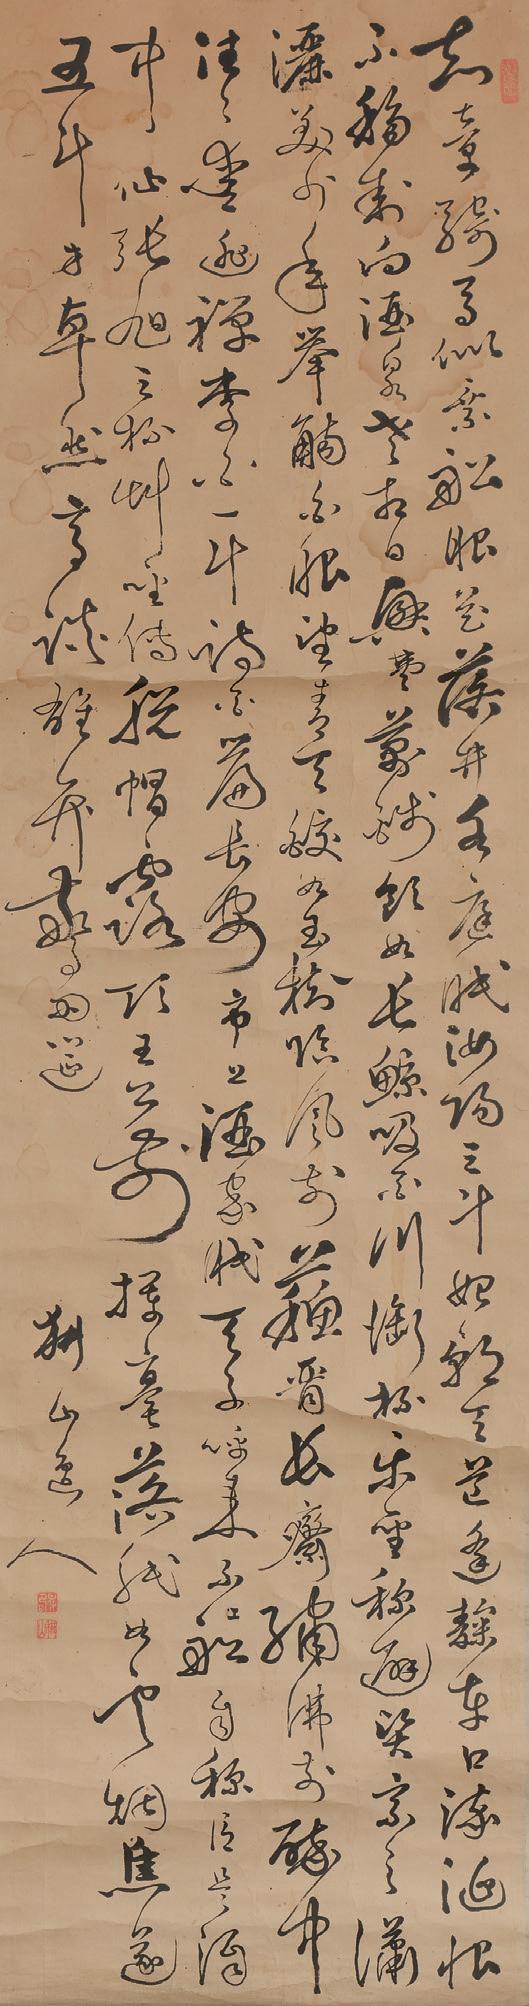 知章騎馬似乘船眼花落井水底眠汝陽三斗始朝天道逢麴車口流涎恨
不移封向酒泉左相日興費萬錢飲如長鯨吸百川銜杯樂聖稱避賢宗之瀟
灑美少年舉觴白眼望青天皎如玉樹臨風前蘇晉長齋繡佛前醉中
往々愛逃禪李白一斗詩百篇長安市上酒家眠天子呼來不上船自稱臣是酒
中仙張旭三杯草聖傳脫帽露頂王公前揮毫落紙如雲烟焦遂
五斗方卓然高談雄弁驚四筵
山逸人